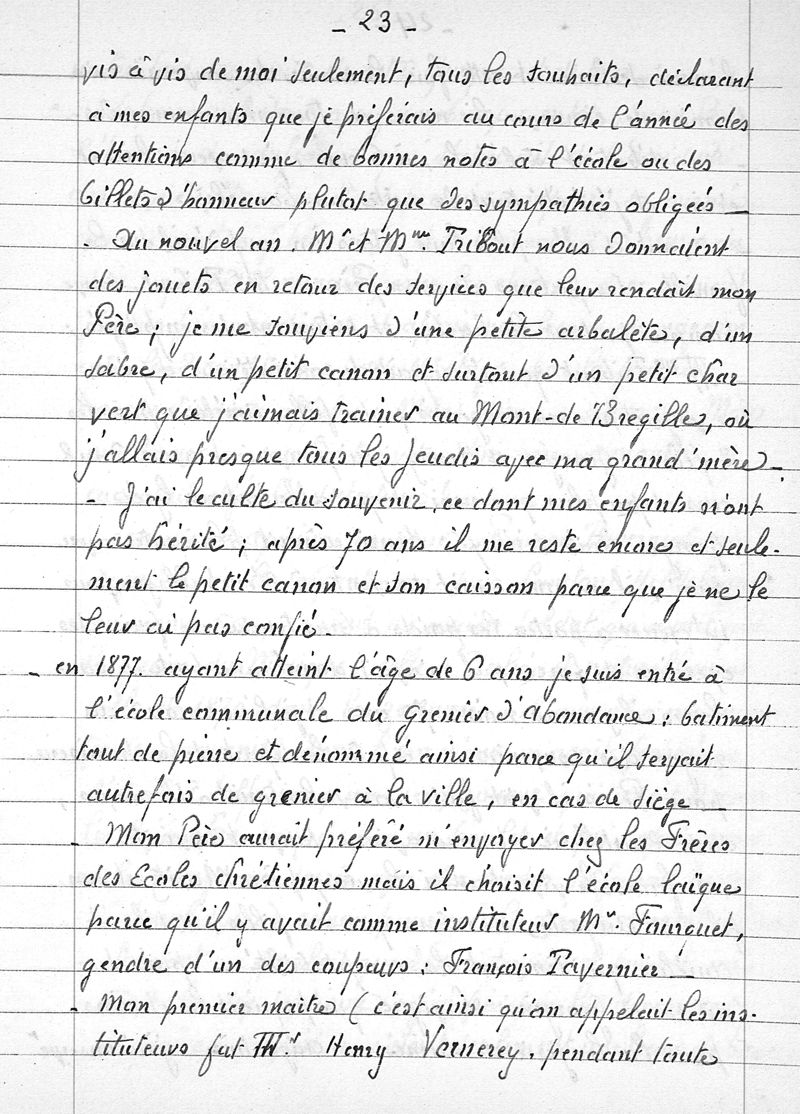 - 23 -
vis à vis de moi seulement, tous les souhaits, déclarant
à mes enfants que je préférais au cours de l'année des
attentions comme de bonnes notes à l'école ou des
billets d'honneur plutot que des sympathies obligées _
- Au nouvel an. Mr et Mme. Tribout nous donnaient
des jouets en retour des services que leur rendait mon
Père ; je me souviens d'une petite arbalète, d'un
sabre, d'un petit canon et surtout d'un petit char
vert que j'aimais trainer au Mont-de Bregille, où
j'allais presque tous les Jeudis avec ma grand'mère -
- J'ai le culte du souvenir, ce dont mes enfants n'ont
pas hérité ; après 70 ans il me reste encore et seule-
ment le petit canon et son caisson parce que je ne le
leur ai pas confié -
- en 1877. ayant atteint l'âge de 6 ans je suis entré à
l'école communale du Grenier d'Abondance ; batiment
tout de pierre et dénommé ainsi parce qu'il servait
autrefois de grenier à la ville, en cas de siège _
- Mon Père aurait préféré m'envoyer chez les Frères
des Ecoles chrétiennes mais il choisit l'école laïque
parce qu'il y avait comme instituteur Mr. Fourquet,
gendre d'un des coupeurs : François Tavernier _
- Mon premier maitre (c'est ainsi qu'on appelait les ins-
tituteurs fut Mr. Henry Vernerey. pendant toute